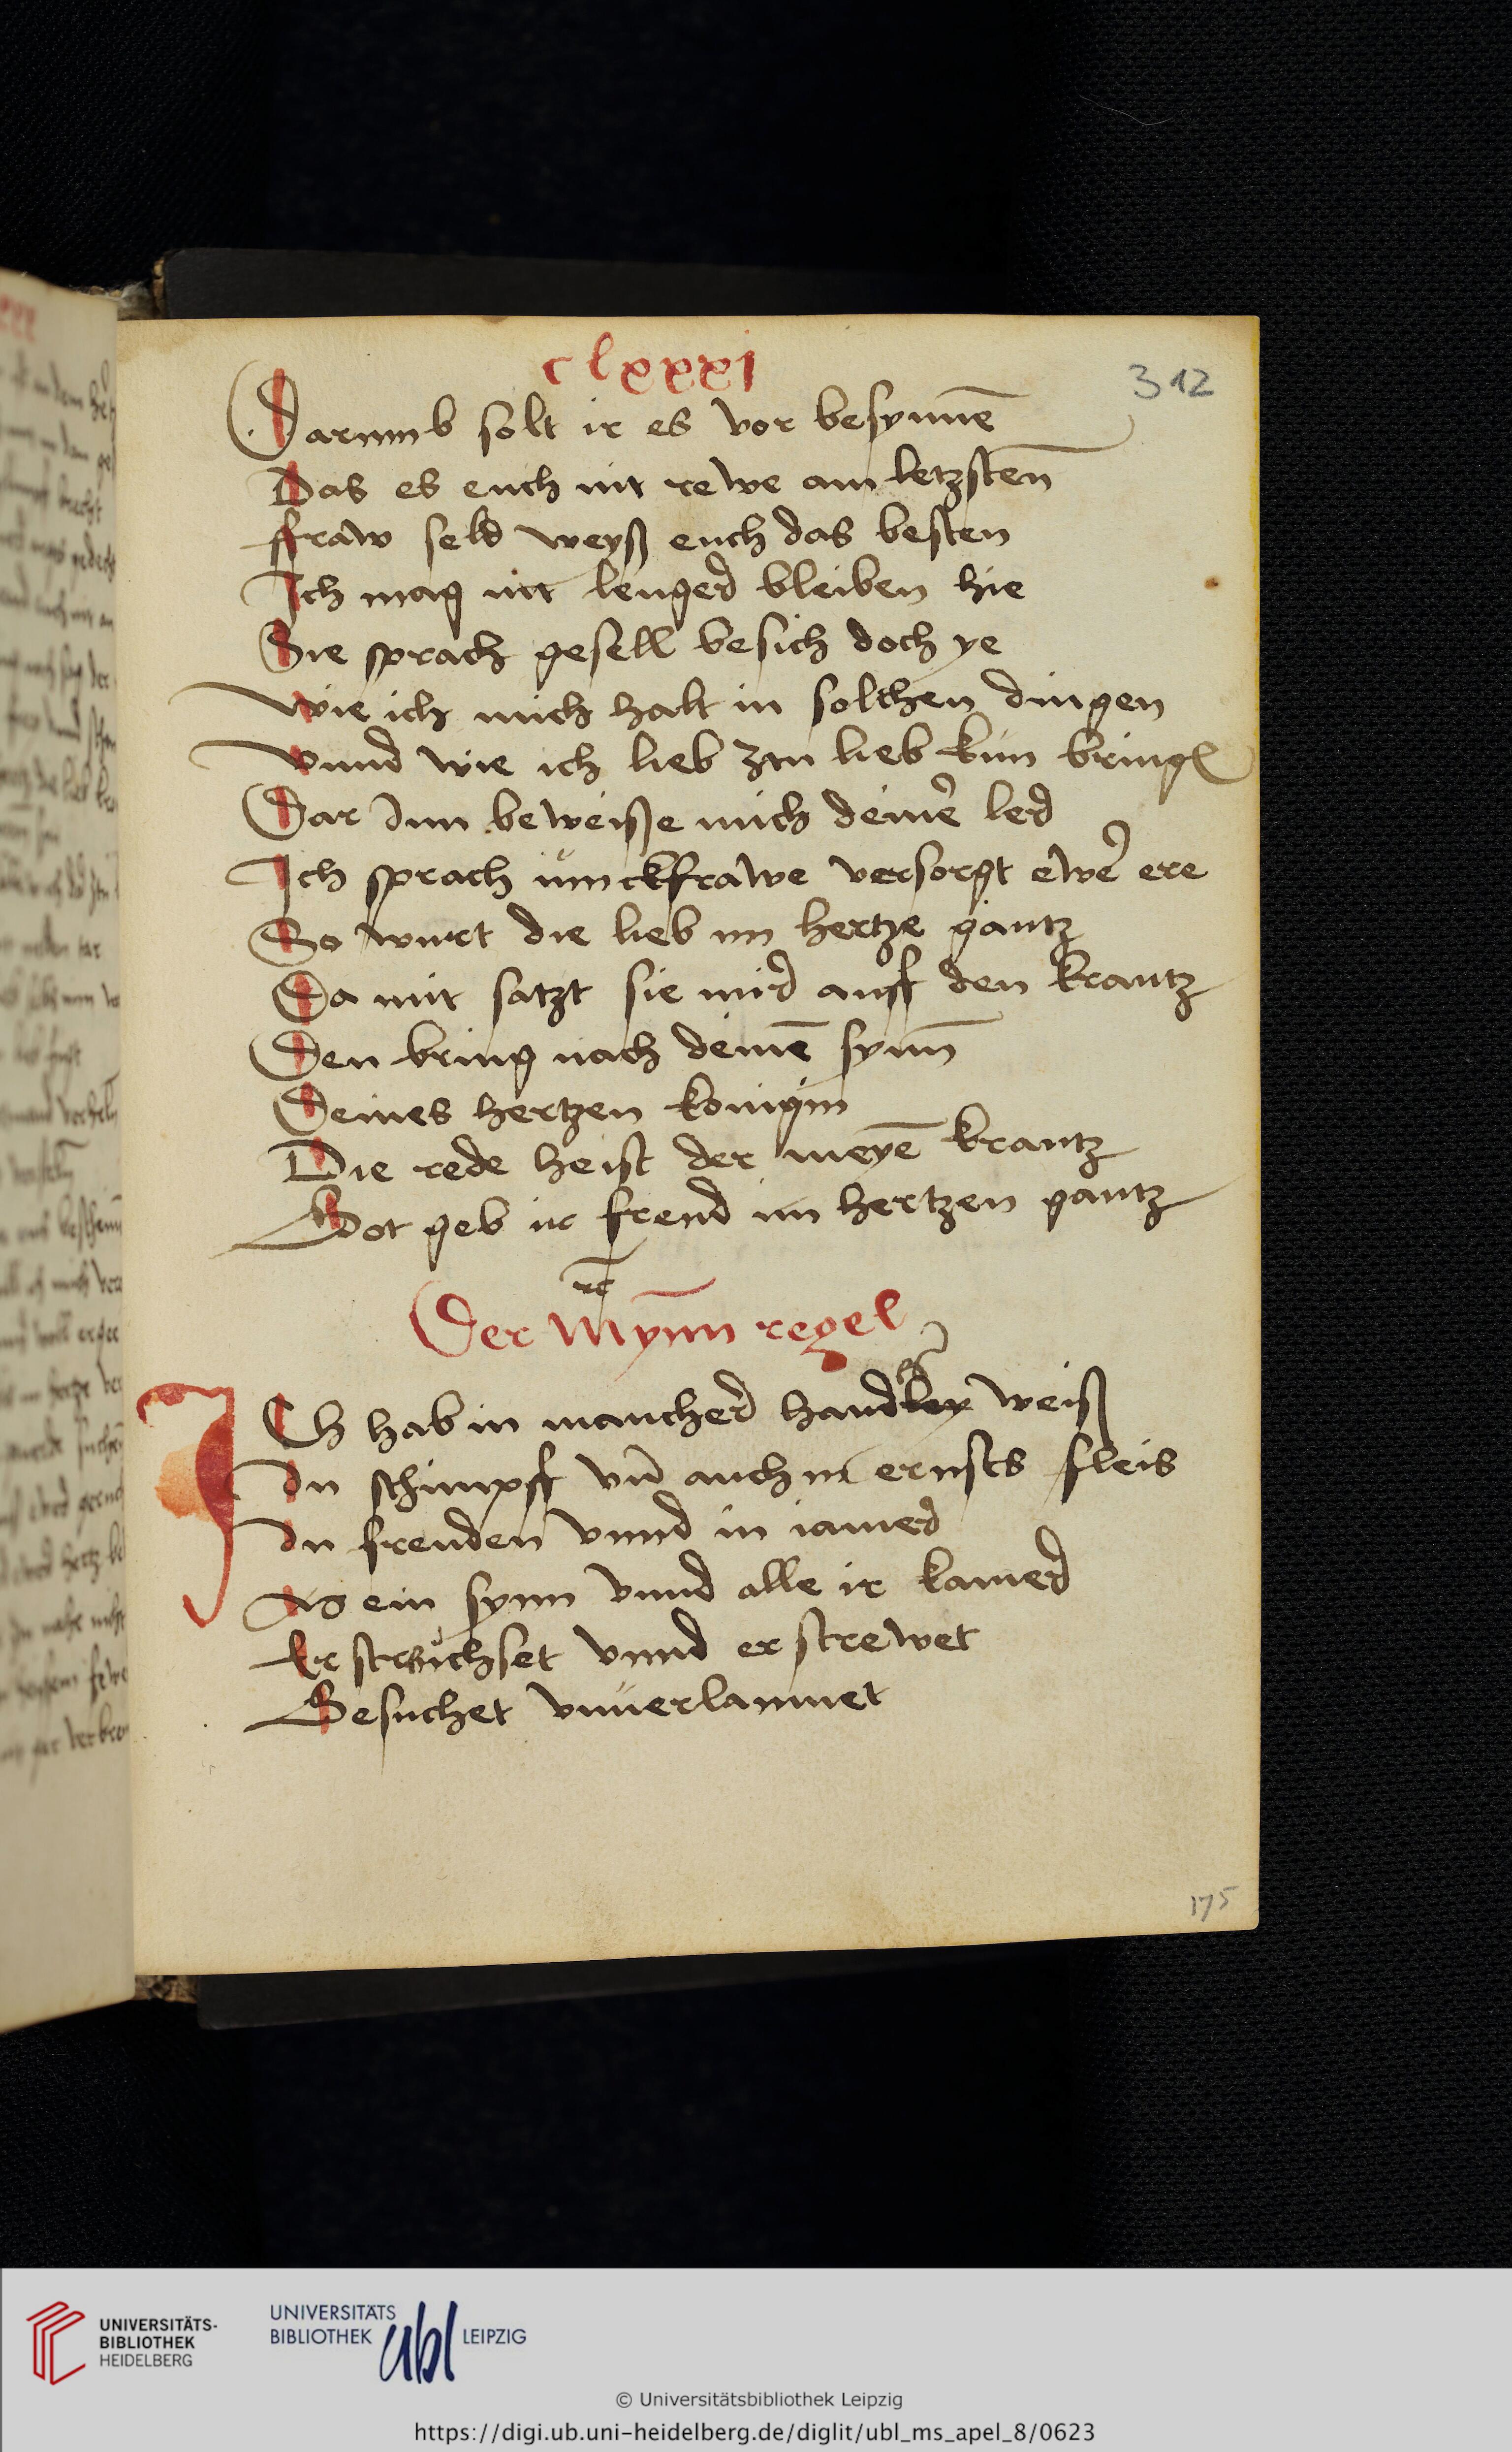 clxxxi
312
Darumb solt ir es vor besynnē
Das es euch nit rewe am letzstēn
ffraw seld weyß euch das besten
Ich mag nit lenger bleiben hie
Sie sprach gesell besich doch ye
wie ich mich halt in solchen dingen
vnnd wie ich lieb zcu lieb kun bringen
Dar Inn beweisse mich deiner ler
Ich sprach iunckfrawe versorgt ewer ere
So wurt die lieb im hertze gantz
Da mit satzt sie mir auff den krantz
Den bring nach deinē synn
Deines hertzen konigin
Die rede heist der meyē krantz
Got geb ir freud im hertzen gantz
Der Mynn regel
ICh hab in mancher handley weiß
In schimpff vn̄ auch in ernsts fleis
In freuden vnnd in iamer
Mein synn vnnd alle ir kamer
Erstruchset vnnd erstrewet
Gesuchet vnuerlaumet
175
UNIVERSITÄTS-
BIBLIOTHEK
HEIDELBERG
UNIVERSITÄTS
BIBLIOTHEK ubl LEIPZIG
© Universitätsbibliothek Leipzig
https://digi.ub.uni-heidelberg.de/diglit/ubl_ms_apel_8/0623